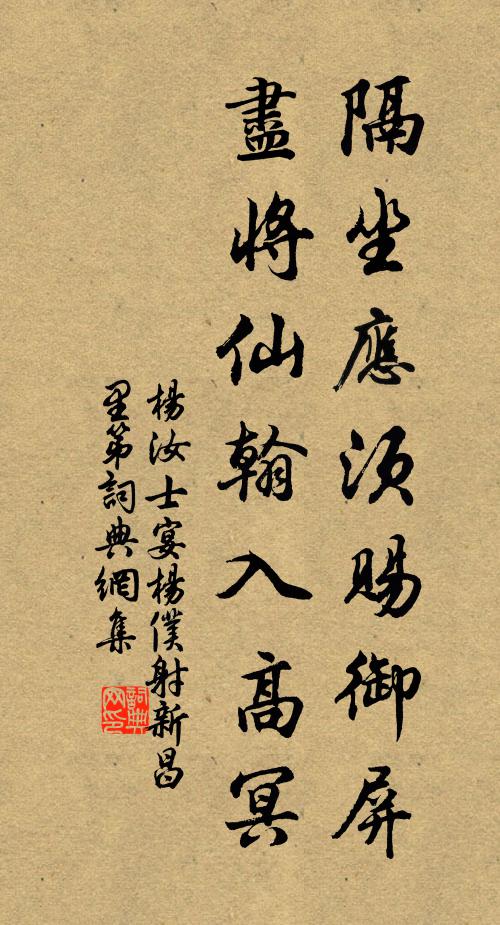 隔坐應須賜御屏
盡將仙翰入高冥
楊汝士宴楊僕射新昌
里第詞典網集
詞典网印